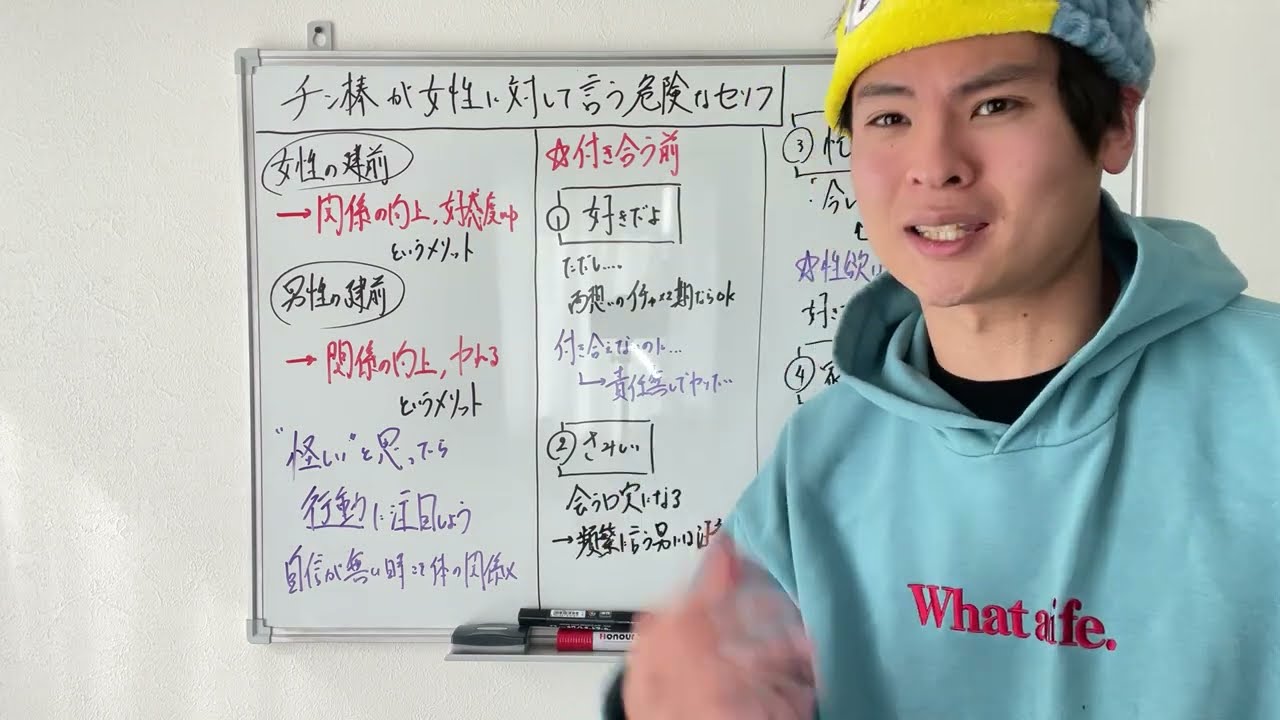 チン棒が女性に対して言う危険なセリフ
女性の建前
→関係の向上、好感度UP
というメリット
男性の建前
→関係の向上、ヤれる
というメリット
"怪しい"と思ったら
行動に注目しよう
自信が無い時こそ体の関係×
☆付き合う前
① 好きだよ
ただし....
両想いのイチャイチャ期ならOK
付き合えないのに...
↳責任無しでヤッた...
② さみしい
会う口実になる
→頻繁に言う男には注
③ 忙
今
☆性欲
好き
④
Honour
What a life.